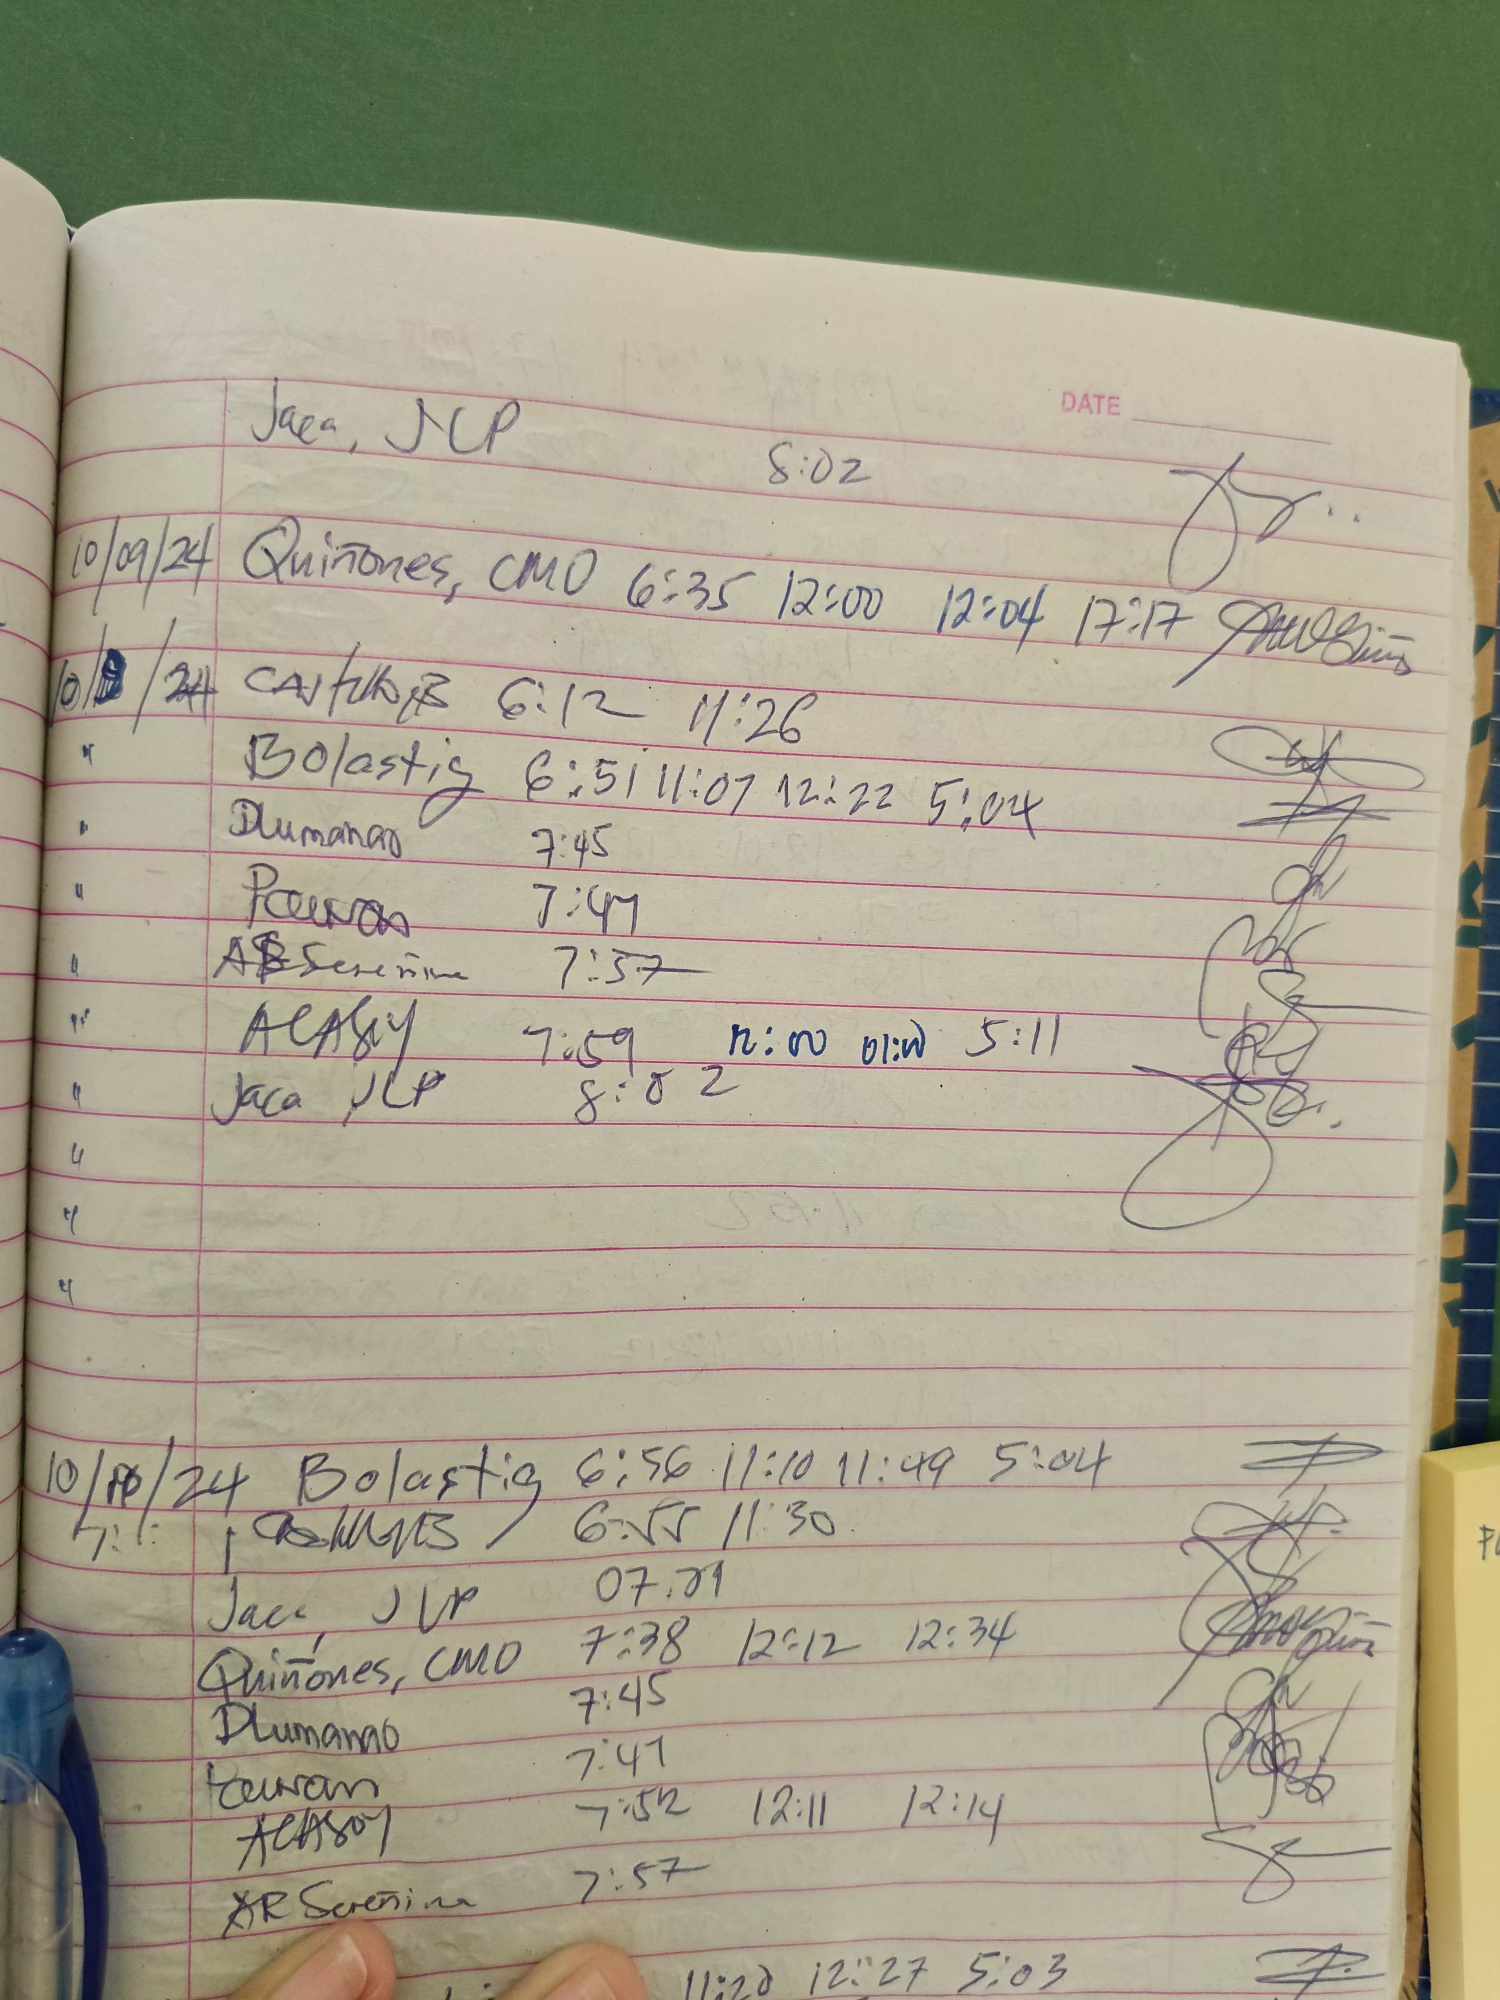 DATE
Jaca, JLP 8:02
10/09/24 Quiñones, CMO 6:35 12:00 12:04 17:17
10/ /24 6:12 11:26
" Bolastig 6:51 11:07 12:22 5:04
" DLumanao 7:45
" 7:47
" Sereñina 7:57
" ACASOY 7:59 12:00 01:00 5:11
" Jaca, JLP 8:02
"
"
"
10/10/24 Bolastig 6:56 11:10 11:49 5:04
6:55 11:30
Jaca, JLP
Quiñones, CMO 7:38 12:12 12:34
DLumanao 7:45
7:47
ACASOY 7:52 12:11 12:14
AR Sereñina 7:57
11:20 12:27 5:03